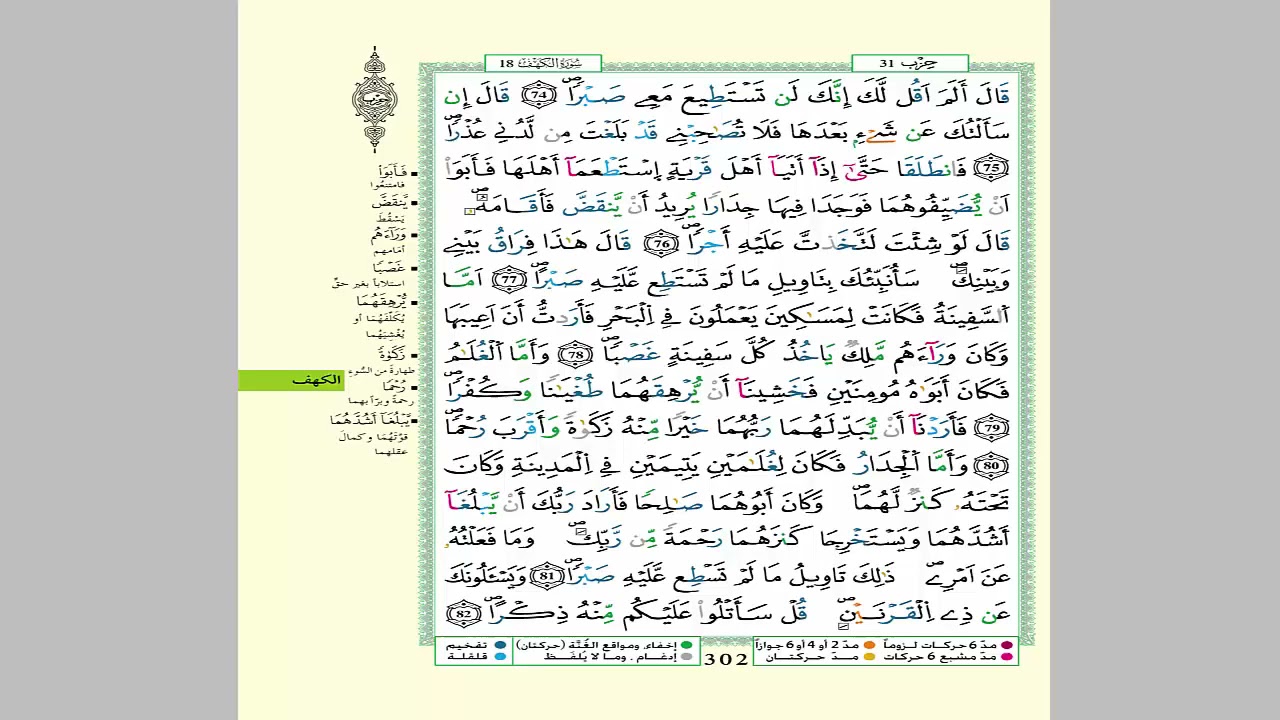 سُورَةُ الكَهْفِ 18
حِزْب 31
قَالَ أَلَمَ اَقُل لَّكَ إِنَّكَ لَن تَسْتَطِيعَ مَعِے صَبْراٗۖ 74 قَالَ إِن
سَأَلْتُكَ عَن شَےْءِۢ بَعْدَهَا فَلَا تُصَٰحِبْنِے قَدْ بَلَغْتَ مِن لَّدُنِے عُذْراٗۖ
75 فَانطَلَقَا حَتَّىٰٓ إِذَآ أَتَيَآ أَهْلَ قَرْيَةٍ اِ۪سْتَطْعَمَآ أَهْلَهَا فَأَبَوَاْ
اَنْ يُّضَيِّفُوهُمَا فَوَجَدَا فِيهَا جِدَاراٗ يُرِيدُ أَنْ يَّنقَضَّ فَأَقَامَهُۥۖ
قَالَ لَوْ شِئْتَ لَتَّخَذتَّ عَلَيْهِ أَجْراٗۖ 76 قَالَ هَٰذَا فِرَاقُ بَيْنِے
وَبَيْنِكَۖ سَأُنَبِّئُكَ بِتَاوِيلِ مَا لَمْ تَسْتَطِع عَّلَيْهِ صَبْراًۖ 77 اَمَّا
اَ۬لسَّفِينَةُ فَكَانَتْ لِمَسَٰكِينَ يَعْمَلُونَ فِے اِ۬لْبَحْرِ فَأَرَدتُّ أَنَ اَعِيبَهَا
وَكَانَ وَرَآءَهُم مَّلِكٞ يَاخُذُ كُلَّ سَفِينَةٍ غَصْباٗۖ 78 وَأَمَّا اَ۬لْغُلَٰمُ
فَكَانَ أَبَوَٰهُ مُومِنَيْنِ فَخَشِينَآ أَنْ يُّرْهِقَهُمَا طُغْيَٰناٗ وَكُفْراٗۖ
79 فَأَرَدْنَآ أَنْ يُّبَدِّلَهُمَا رَبُّهُمَا خَيْراٗ مِّنْهُ زَكَوٰةٗ وَأَقْرَبَ رُحْماٗۖ
80 وَأَمَّا اَ۬لْجِدَارُ فَكَانَ لِغُلَٰمَيْنِ يَتِيمَيْنِ فِے اِ۬لْمَدِينَةِ وَكَانَ
تَحْتَهُۥ كَنزٞ لَّهُمَاۖ وَكَانَ أَبُوهُمَا صَٰلِحاٗ فَأَرَادَ رَبُّكَ أَنْ يَّبْلُغَآ
أَشُدَّهُمَا وَيَسْتَخْرِجَا كَنزَهُمَا رَحْمَةٗ مِّن رَّبِّكَۖ وَمَا فَعَلْتُهُۥ
عَنَ اَمْرِےۖ ذَٰلِكَ تَاوِيلُ مَا لَمْ تَسْطِع عَّلَيْهِ صَبْراٗۖ 81 وَيَسْـَٔلُونَكَ
عَن ذِے اِ۬لْقَرْنَيْنِۖ قُلْ سَأَتْلُواْ عَلَيْكُم مِّنْهُ ذِكْراًۖ 82
حِزْب
فَأَبَوَاْ
فامتنعُوا
يَّنقَضَّ
يَسْقُط
وَرَآءَهُم
أمَامهم
غَصْبًا
استلاباً بغير حقّ
يُّرْهِقَهُمَا
يُكلّفهُمَا أو
يُغْشِيَهُمَا
زَكَوٰةً
طهارةً من السُّوءِ
رُحْمًا
رحمةً وبرّاً بهما
يَّبْلُغَآ أَشُدَّهُمَا
قوّتهُمَا وكمالَ
عقلهما
الكهف
مدّ 6 حركات لـزوماً
مدّ 2 أو 4 أو 6 جوازاً
إخفاء، ومواقع الغُنَّة (حركتان)
تفخيم
مدّ مشبع 6 حركات
مـدّ حركتـان
إدغـام ، ومـا لا يُلفـَـظ
قلقلة
302